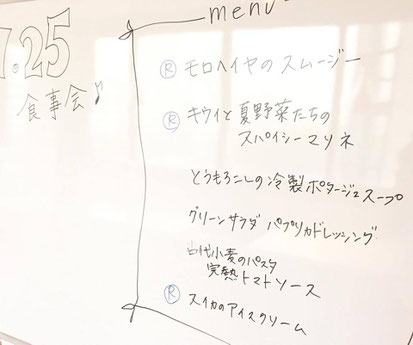 7.25
食事会♪
menu
Ⓡ モロヘイヤのスムージー
Ⓡ キウイと夏野菜たちの
スパイシーマリネ
とうもろこしの冷製ポタージュスープ
グリーンサラダ パプリカドレッシング
古代小麦のパスタ
完熟トマトソース
Ⓡ スイカのアイスクリーム